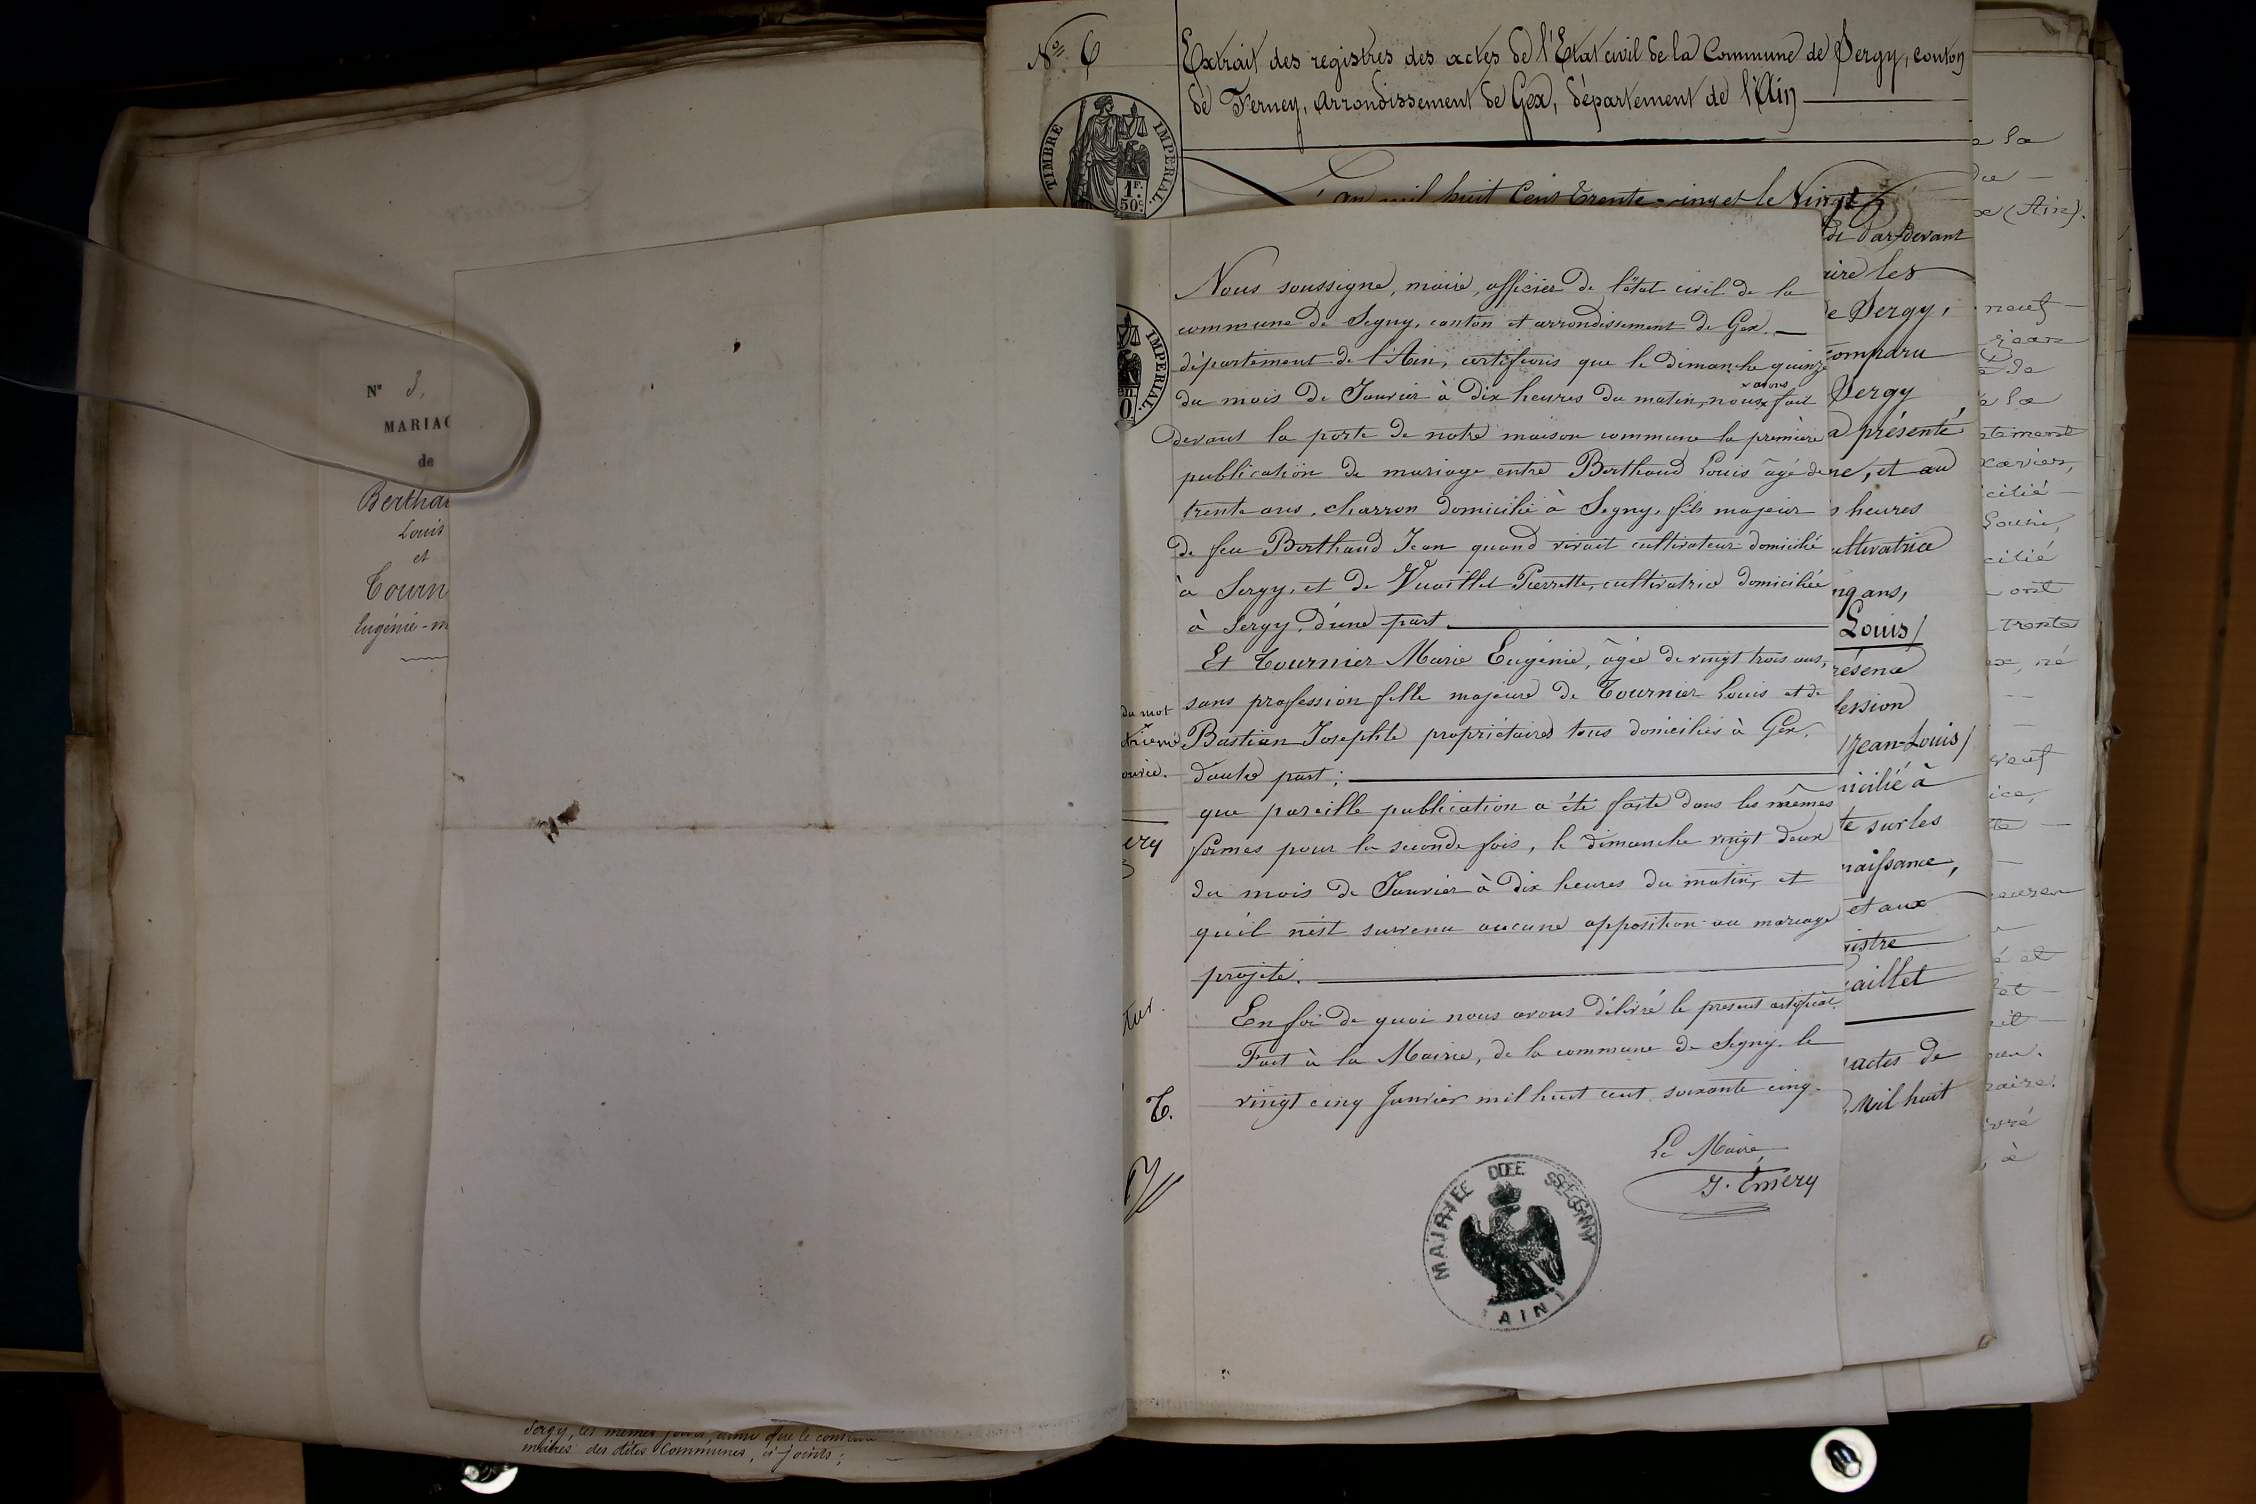 Nº 3,
MARIAG
de
Berthau
Louis
et
Tourn
Eugénie-m
Sergy, les mêmes jours, ainsi que le constate
maires des dites Communes, ci-joints;
Nº 6
Extrait des registres des actes de l'Etat civil de la Commune de Sergy, canton
de Ferney, arrondissement de Gex, département de l'Ain
TIMBRE IMPERIAL
1F.
50c.
L'an mil huit Cent trente-cinq et le Vingt
Nous soussigné, maire, officier de l'état civil de la
commune de Segny, canton et arrondissement de Gex.
département de l'Ain, certifions que le dimanche quinze
x avons
du mois de Janvier à dix heures du matin, nous x fait
devant la porte de notre maison commune la première
publication de mariage entre Berthaud Louis âgé de
trente ans, charron domicilié à Segny, fils majeur
de feu Berthaud Jean quand vivait cultivateur domicilié
à Sergy, et de Vuaillet Pierrette, cultivatrice domiciliée
à Sergy, d'une part.
Et Tournier Marie Eugénie, âgée de vingt trois ans,
sans profession fille majeure de Tournier Louis et de
Bastian Josephte propriétaires tous domiciliés à Gex,
d'autre part;
que pareille publication a été faite dans les mêmes
formes pour la seconde fois, le dimanche vingt deux
du mois de Janvier à dix heures du matin, et
qu'il n'est survenu aucune opposition au mariage
projeté.
En foi de quoi nous avons délivré le présent certificat.
Fait à la Mairie, de la commune de Segny le
vingt cinq Janvier mil huit cent soixante cinq.
Le Maire,
J. Éméry
MAIRIE DE SEGNY
(AIN)
IMPERIAL.
du mot
ouvrée.
ery
T.
di Par-devant
aire les
e Sergy,
comparu
Sergy
a présenté
ne, et au
s heures
ultivatrice
nq ans,
Louis/
résence
fession
/Jean-Louis/
nicilié à
te sur les
naissance,
et aux
gistre
aillet
actes de
Mil huit
e la
x (Ain).
neuf
jean
de
e la
tement
xavier,
cilié
Louis,
cilié
ont
trente
ex, né
veuf
ice,
te
é et
et
il
aire.
vré
, à